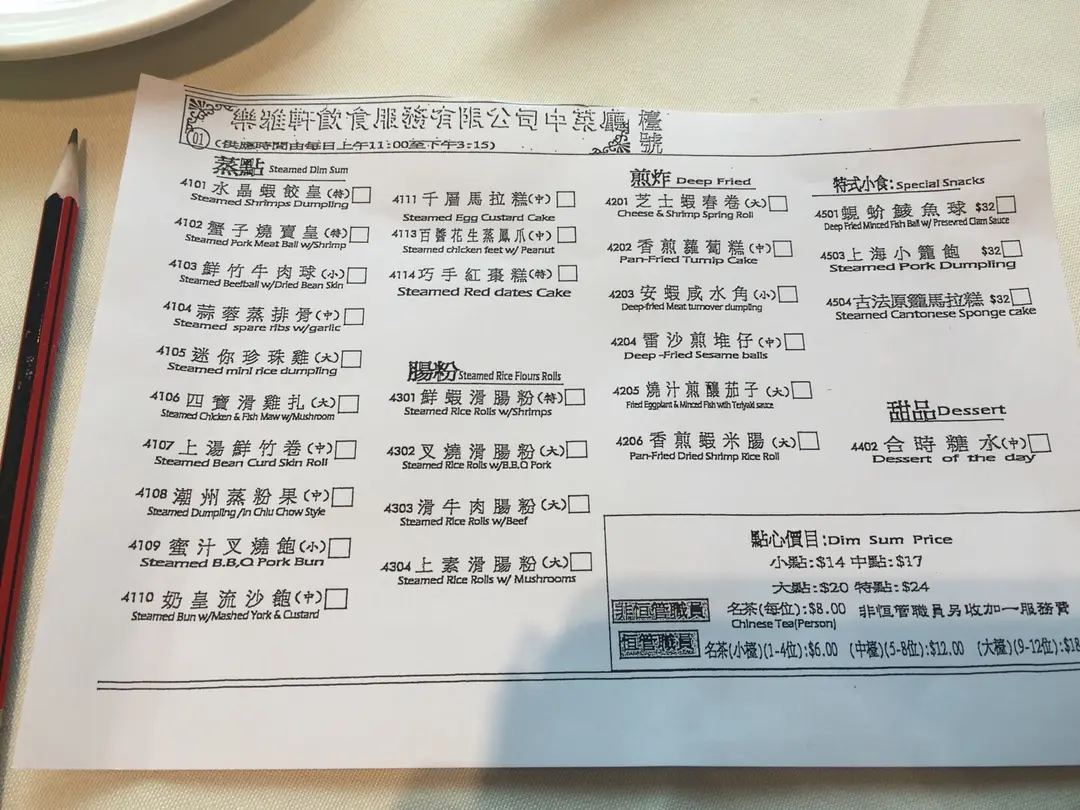 樂雅軒飲食服務有限公司中菜廳 檯號
01 (供應時間由每日上午11:00至下午3:15)
蒸點 Steamed Dim Sum
4101 水晶蝦餃皇(特)
Steamed Shrimps Dumpling
4102 蟹子燒賣皇(特)
Steamed Pork Meat Ball w/Shrimp
4103 鮮竹牛肉球(小)
Steamed Beefball w/Dried Bean Skin
4104 蒜蓉蒸排骨(中)
Steamed spare ribs w/garlic
4105 迷你珍珠雞(大)
Steamed mini rice dumpling
4106 四寶滑雞扎(大)
Steamed Chicken & Fish Maw w/Mushroom
4107 上湯鮮竹卷(中)
Steamed Bean Curd Skin Roll
4108 潮州蒸粉果(中)
Steamed Dumpling /in Chiu Chow Style
4109 蜜汁叉燒飽(小)
Steamed B.B,Q Pork Bun
4110 奶皇流沙飽(中)
Steamed Bun w/Mashed York & Custard
4111 千層馬拉糕(中)
Steamed Egg Custard Cake
4113 百醬花生蒸鳳爪(中)
Steamed chicken feet w/ Peanut
4114 巧手紅棗糕(特)
Steamed Red dates Cake
腸粉 Steamed Rice Flours Rolls
4301 鮮蝦滑腸粉(特)
Steamed Rice Rolls w/Shrimps
4302 叉燒滑腸粉(大)
Steamed Rice Rolls w/B.B.Q Pork
4303 滑牛肉腸粉(大)
Steamed Rice Rolls w/Beef
4304 上素滑腸粉(大)
Steamed Rice Rolls w/ Mushrooms
煎炸 Deep Fried
4201 芝士蝦春卷(大)
Cheese & Shrimp Spring Roll
4202 香煎蘿蔔糕(中)
Pan-Fried Turnip Cake
4203 安蝦咸水角(小)
Deep-fried Meat turnover dumpling
4204 雷沙煎堆仔(中)
Deep -Fried Sesame balls
4205 燒汁煎釀茄子(大)
Fried Eggplant & Minced Fish with Teriyaki sauce
4206 香煎蝦米腸(大)
Pan-Fried Dried Shrimp Rice Roll
特式小食: Special Snacks
4501 蜆蚧鯪魚球 $32
Deep Fried Minced Fish Ball w/ Preserved Clam Sauce
4503 上海小籠飽 $32
Steamed Pork Dumpling
4504 古法原籠馬拉糕 $32
Steamed Cantonese Sponge cake
甜品 Dessert
4402 合時糖水(中)
Dessert of the day
點心價目:Dim Sum Price
小點:$14 中點:$17
大點:$20 特點:$24
非恒管職員 名茶(每位):$8.00 非恒管職員另收加一服務費
Chinese Tea(Person)
恒管職員 名茶(小檯)(1-4位):$6.00 (中檯)(5-8位):$12.00 (大檯)(9-12位):$18